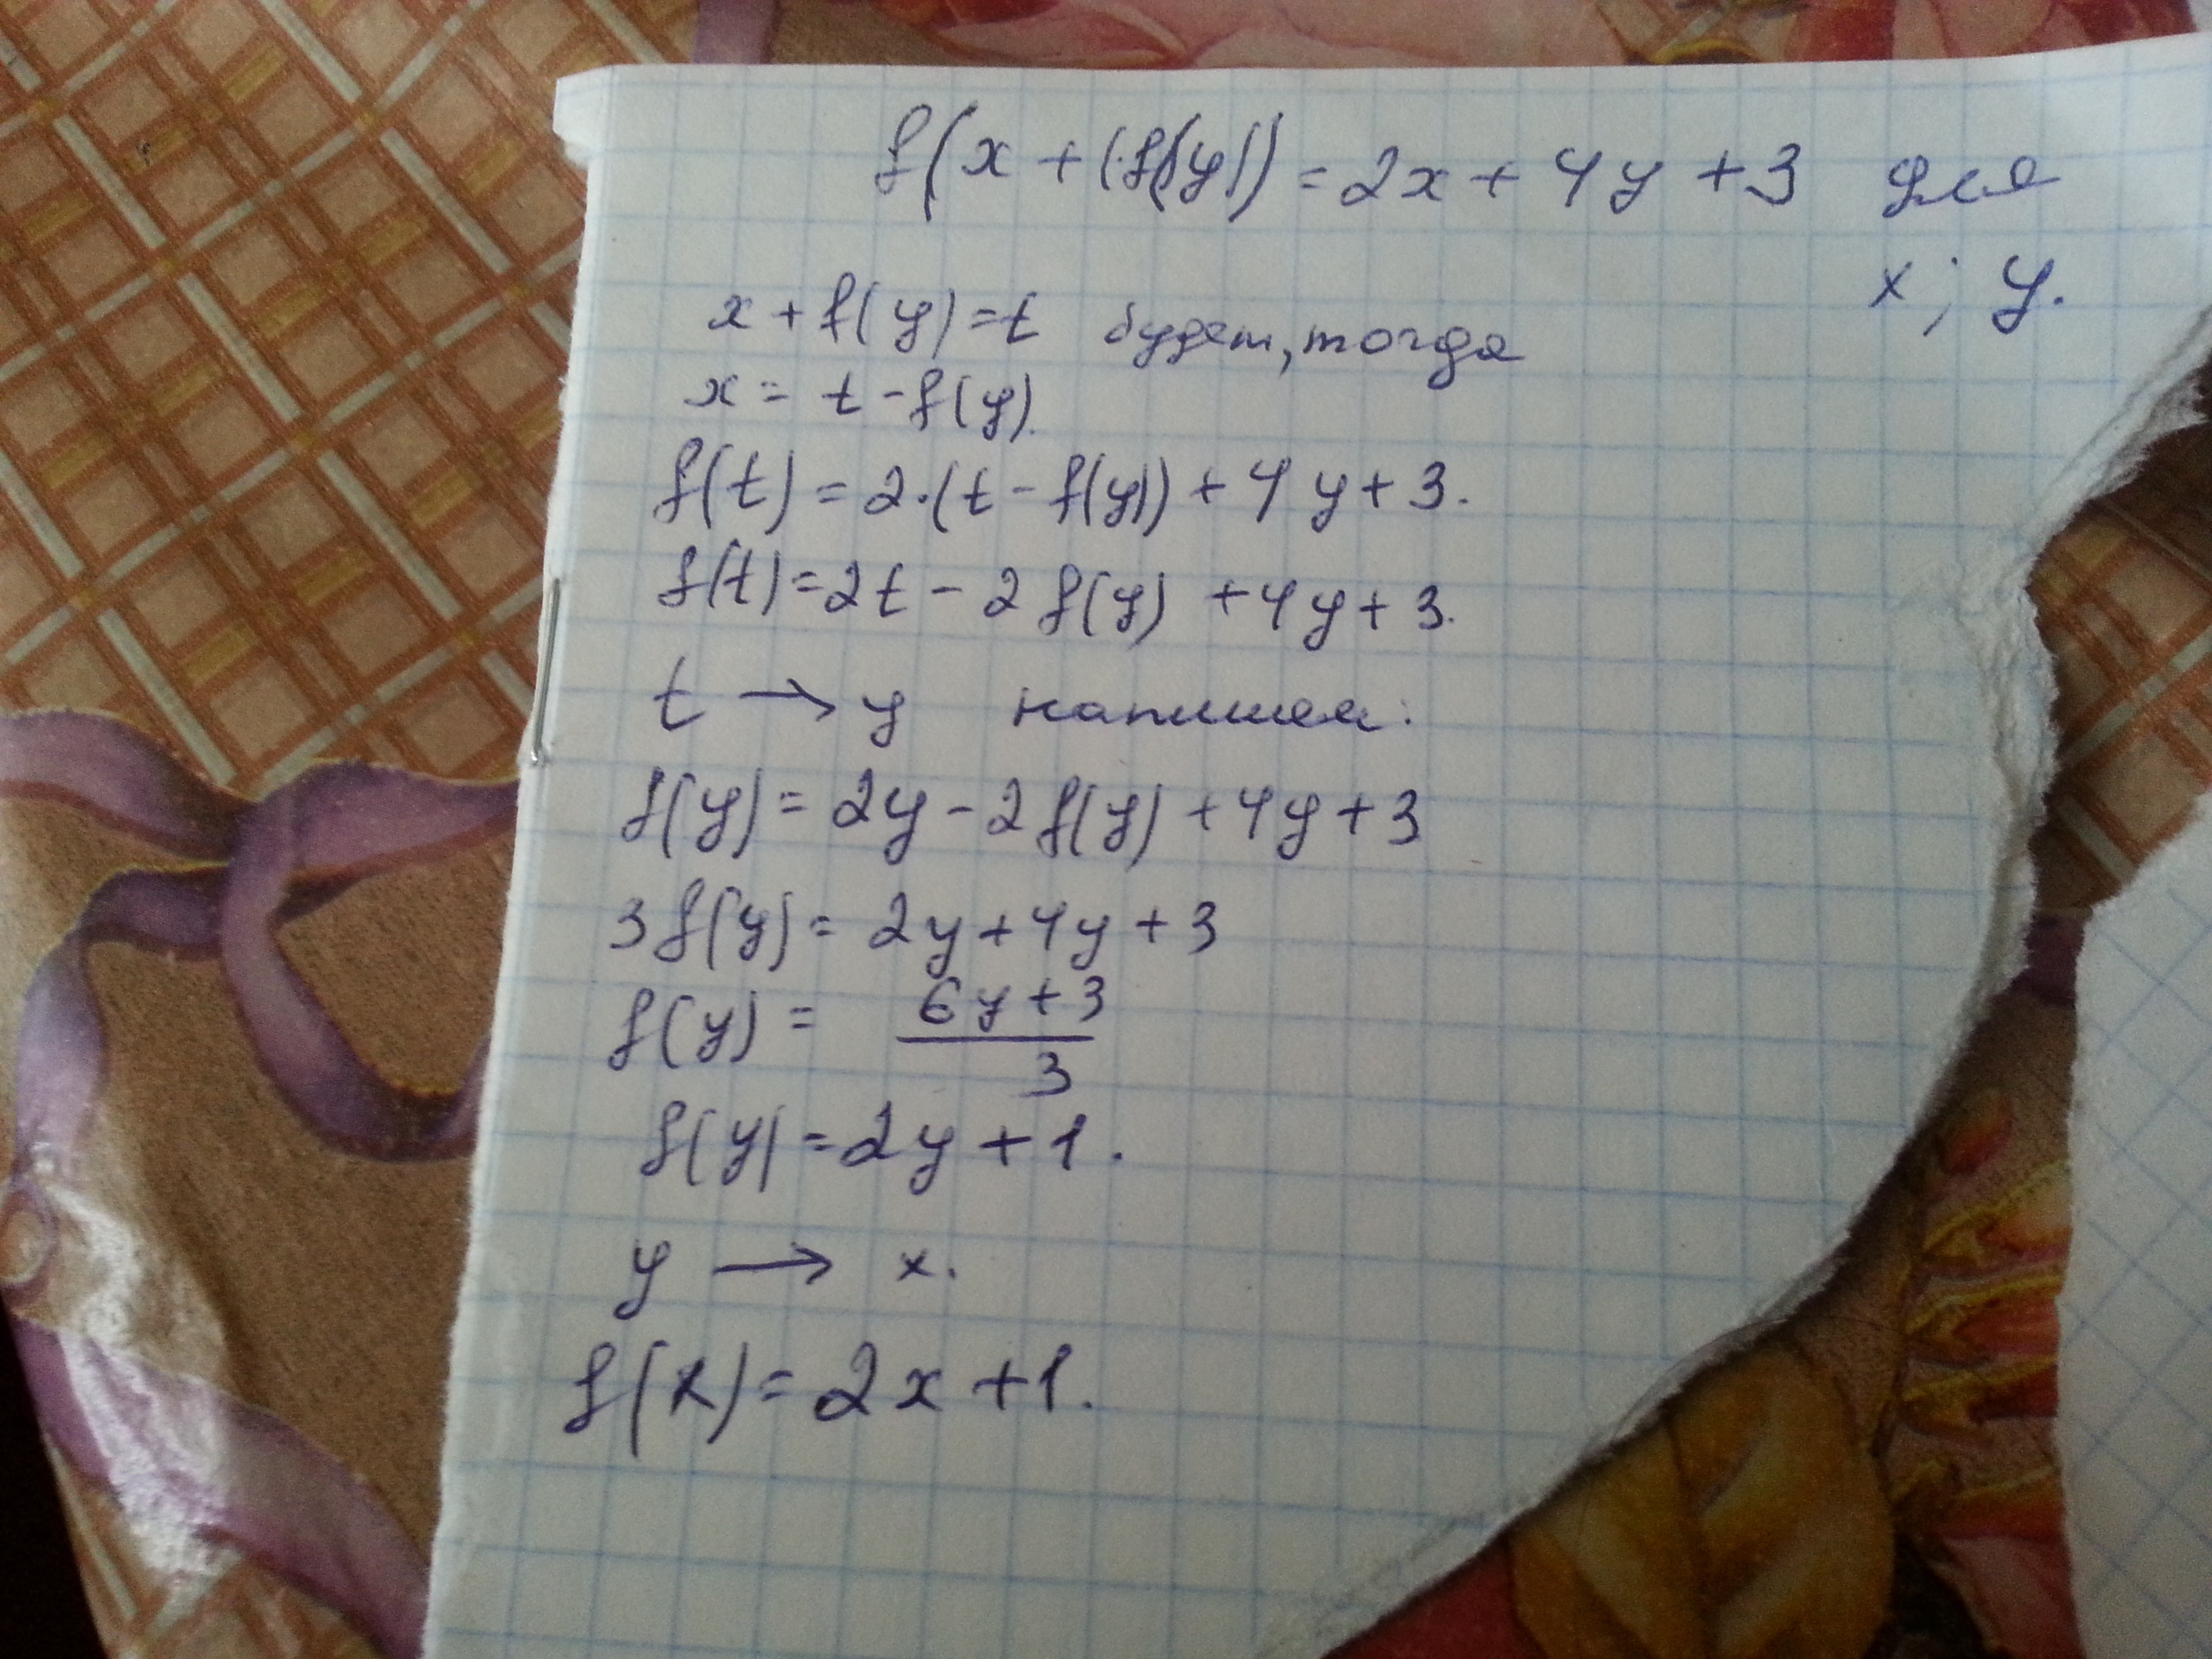 f(x + (f(y)) = 2x + 4y + 3 для
x; y.
x + f(y) = t будет, тогда
x = t - f(y).
f(t) = 2·(t - f(y)) + 4y + 3.
f(t) = 2t - 2f(y) + 4y + 3.
t → y напишем:
f(y) = 2y - 2f(y) + 4y + 3
3f(y) = 2y + 4y + 3
f(y) = \frac{6y + 3}{3}
f(y) = 2y + 1.
y → x.
f(x) = 2x + 1.